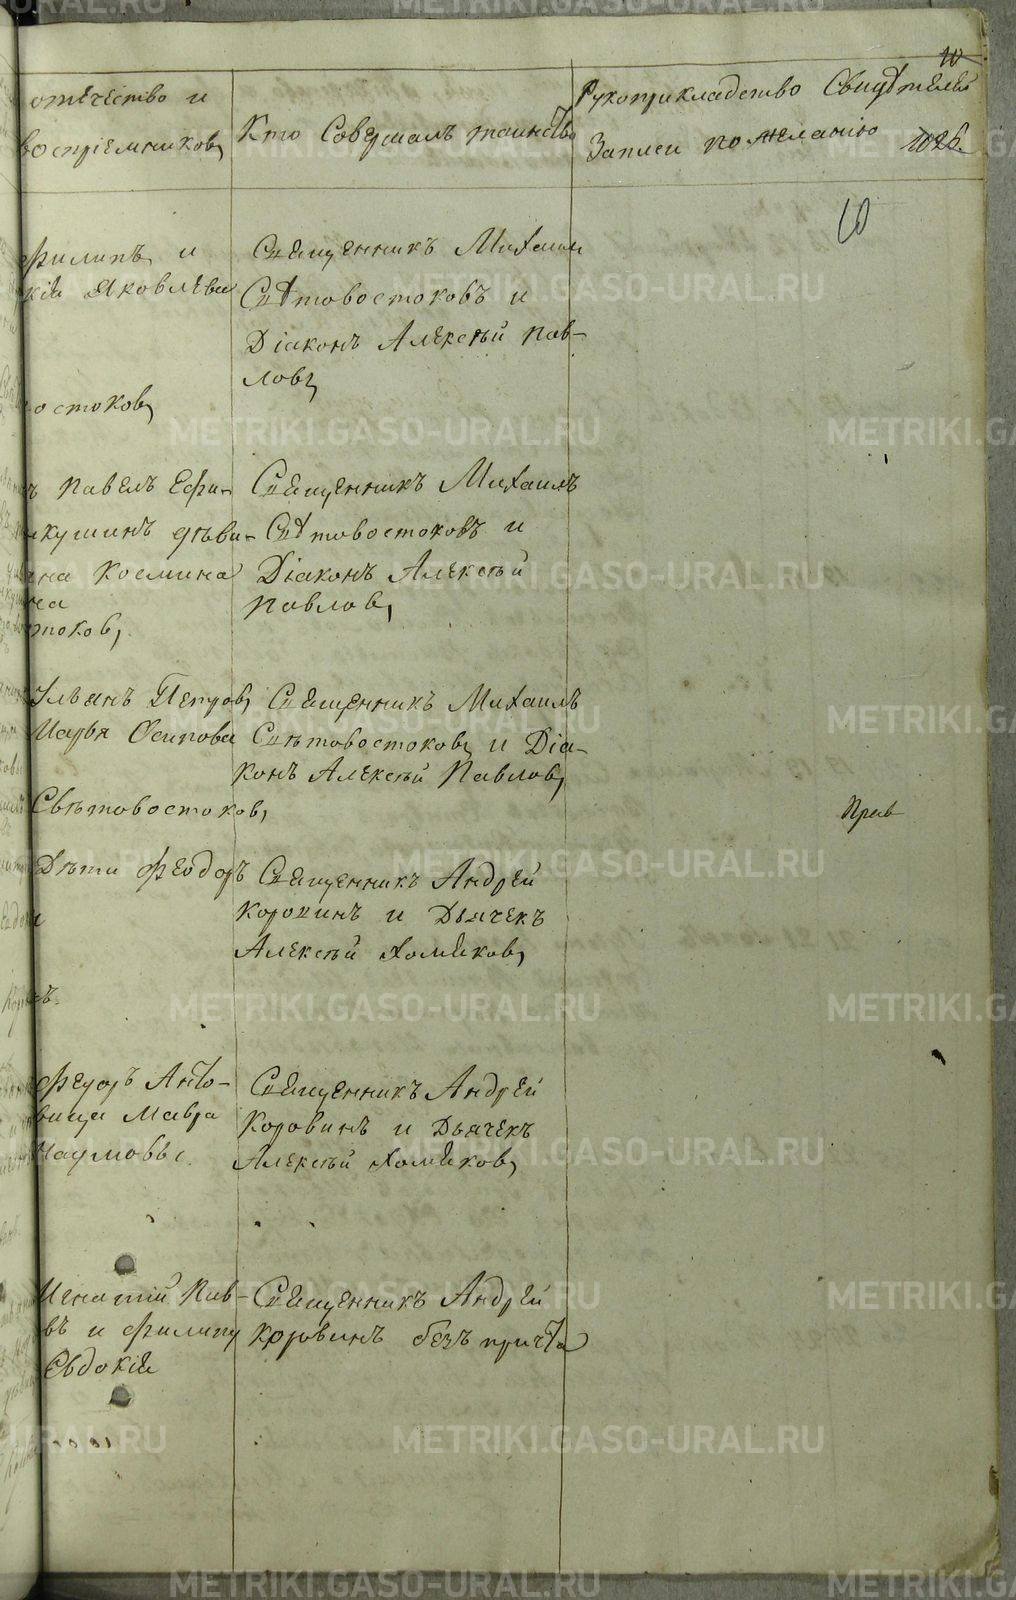 10
отечество и
воспріемниковъ
Кто Совершалъ таинство
Рукоприкладство Свидѣтелей
Записи по желанію
1026.
10
Филипъ и
кія Яковлева
остоковъ
Священникъ Михаилъ
Свѣтовостоковъ и
Діаконъ Алексѣй Пав-
ловъ
ъ Павелъ Ефи-
кушинъ дѣви-
на Космина
на
токовъ
Священникъ Михаилъ
Свѣтовостоковъ и
Діаконъ Алексѣй
Павловъ
Ульянъ Петровъ
Марья Осипова
Свѣтовостоковъ
Священникъ Михаилъ
Свѣтовостоковъ и Діа-
конъ Алексѣй Павловъ
Прав
Дѣти Феодоръ
Священникъ Андрей
Коровинъ и Дьячекъ
Алексѣй Хомяковъ
ъ.
Федоръ Анто-
вица Мавра
Наумовы
Священникъ Андрей
Коровинъ и Дьячекъ
Алексѣй Хомяковъ
Игнатій Пав-
въ и Филипъ
Евдокія
Священникъ Андрей
Коровинъ безъ причта
METRIKI.GASO-URAL.RU